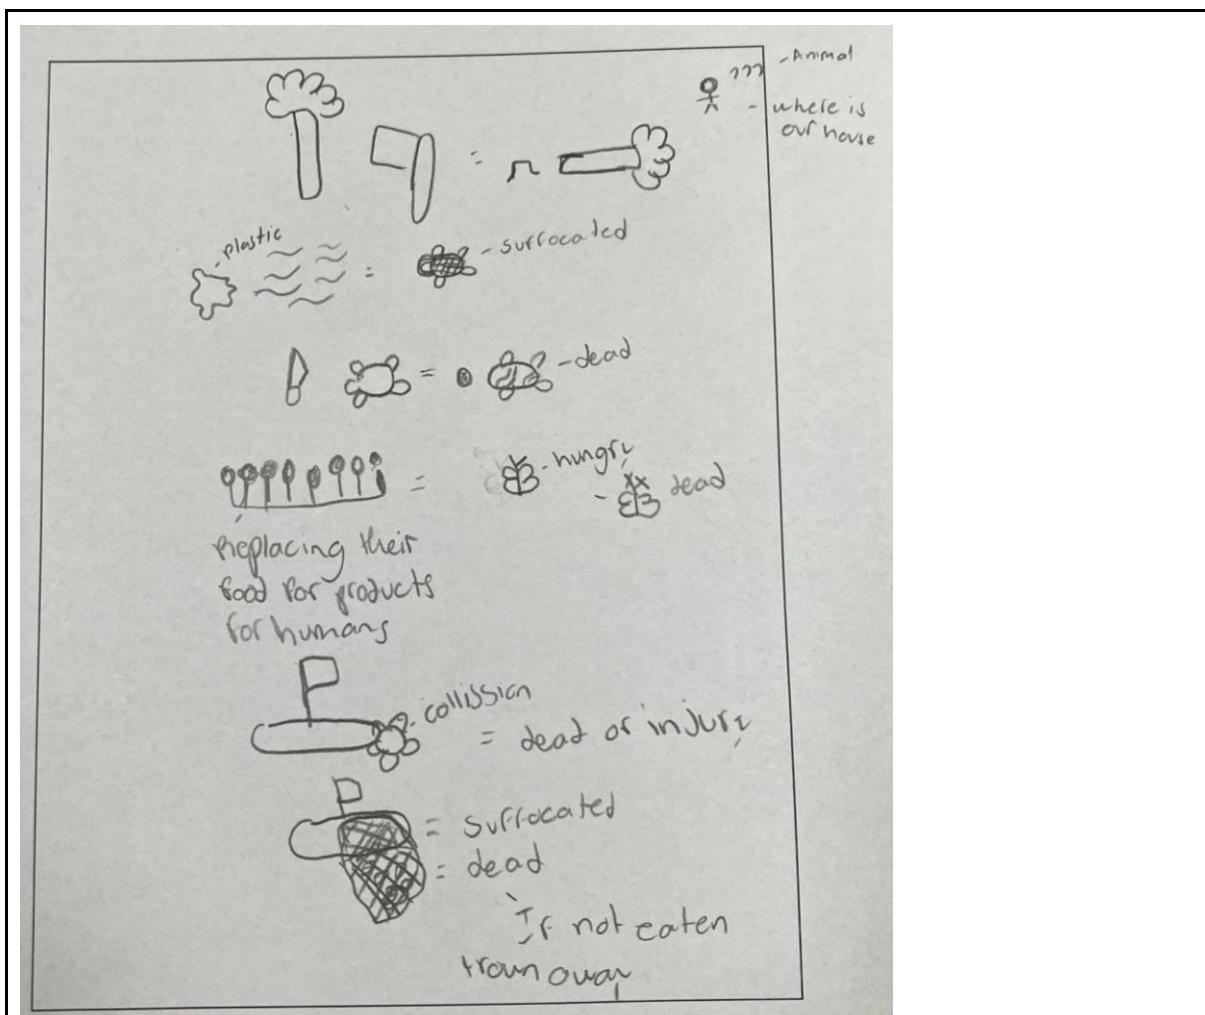 -Animal
???
- where is
our house
plastic
= 
- surrocated
=
= -dead
= -hungry
- dead
Replacing their
food for products
for humans
collission
= dead or injury
= surrocated
= dead
If not eaten
trown away